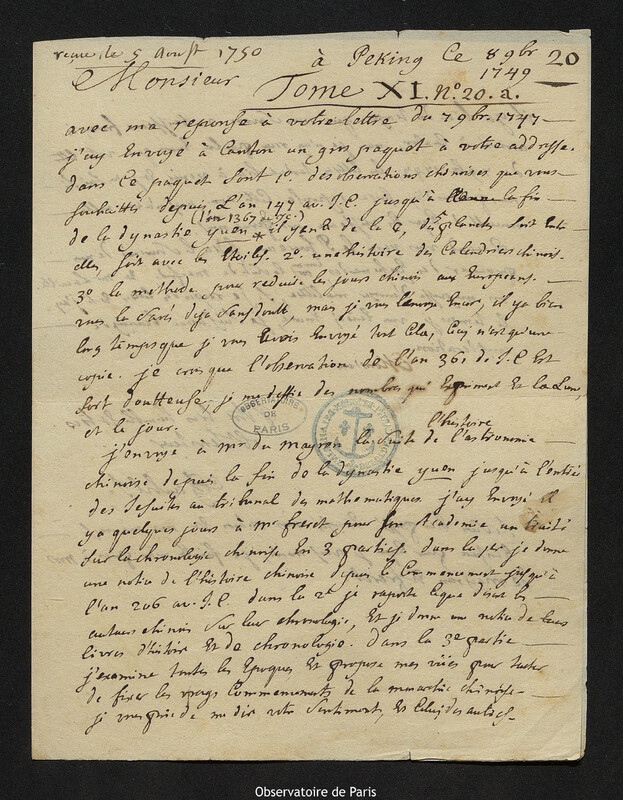 reçue le 5 Aoust 1750
à Peking ce 8 9br 1749
20
Monsieur
Tome XI. N.º 20. a.
avec ma reponse à votre lettre du 7 9br. 1747
j'ay Envoyé à Canton un gros paquet à votre addresse.
dans ce paquet sont 1º. des observations chinoises que vous
souhaittés depuis L'an 147 av. J.C. jusqu'à la fin
(l'an 1367 de J.C.)
de la dynastie yuen * il y en a de la C, des planetes soit entre
elles, soit avec les Etoiles. 2º. une histoire des Calendriers chinois.
3º la methode pour reduire les jours chinois aux Europeans.
vous la sans doutte, mais je vous l'envoye Encor, il y a bien
long temps que je vous avois Envoyé tout Cela, Ceci n'est qu'une
copie. je crois que l'observation de l'an 361 de J.C Est
fort doutteuse, je me deffie des nombres qui Expriment Et la Lune,
et le jour.
j'envoye à Mr du Mayran la suite de l'histoire de l'astronomie
chinoise depuis la fin de la dynastie yuen jusqu'à l'entrée
des Jesuites au tribunal des mathematiques. j'ay Envoyé il
y a quelques jours à Mr freret pour son Academie un traité
sur la chronologie chinoise En 3 parties. dans la 1re je donne
une notice de l'histoire chinoise depuis le Commencement jusqu'à
l'an 206 av. J.C. dans la 2e je raporte ce que disent les
auteurs chinois sur leur chronologie, Et je donne une notice de leurs
livres d'histoire Et de chronologie. dans la 3e partie
j'examine toutes les Epoques Et propose mes vües pour tacher
de fixer les vrays Commencements de la monarchie chinoise.
je vous prie de me dire votre sentiment, Et celui des autres.
OBSERVATOIRE DE PARIS
Observatoire de Paris